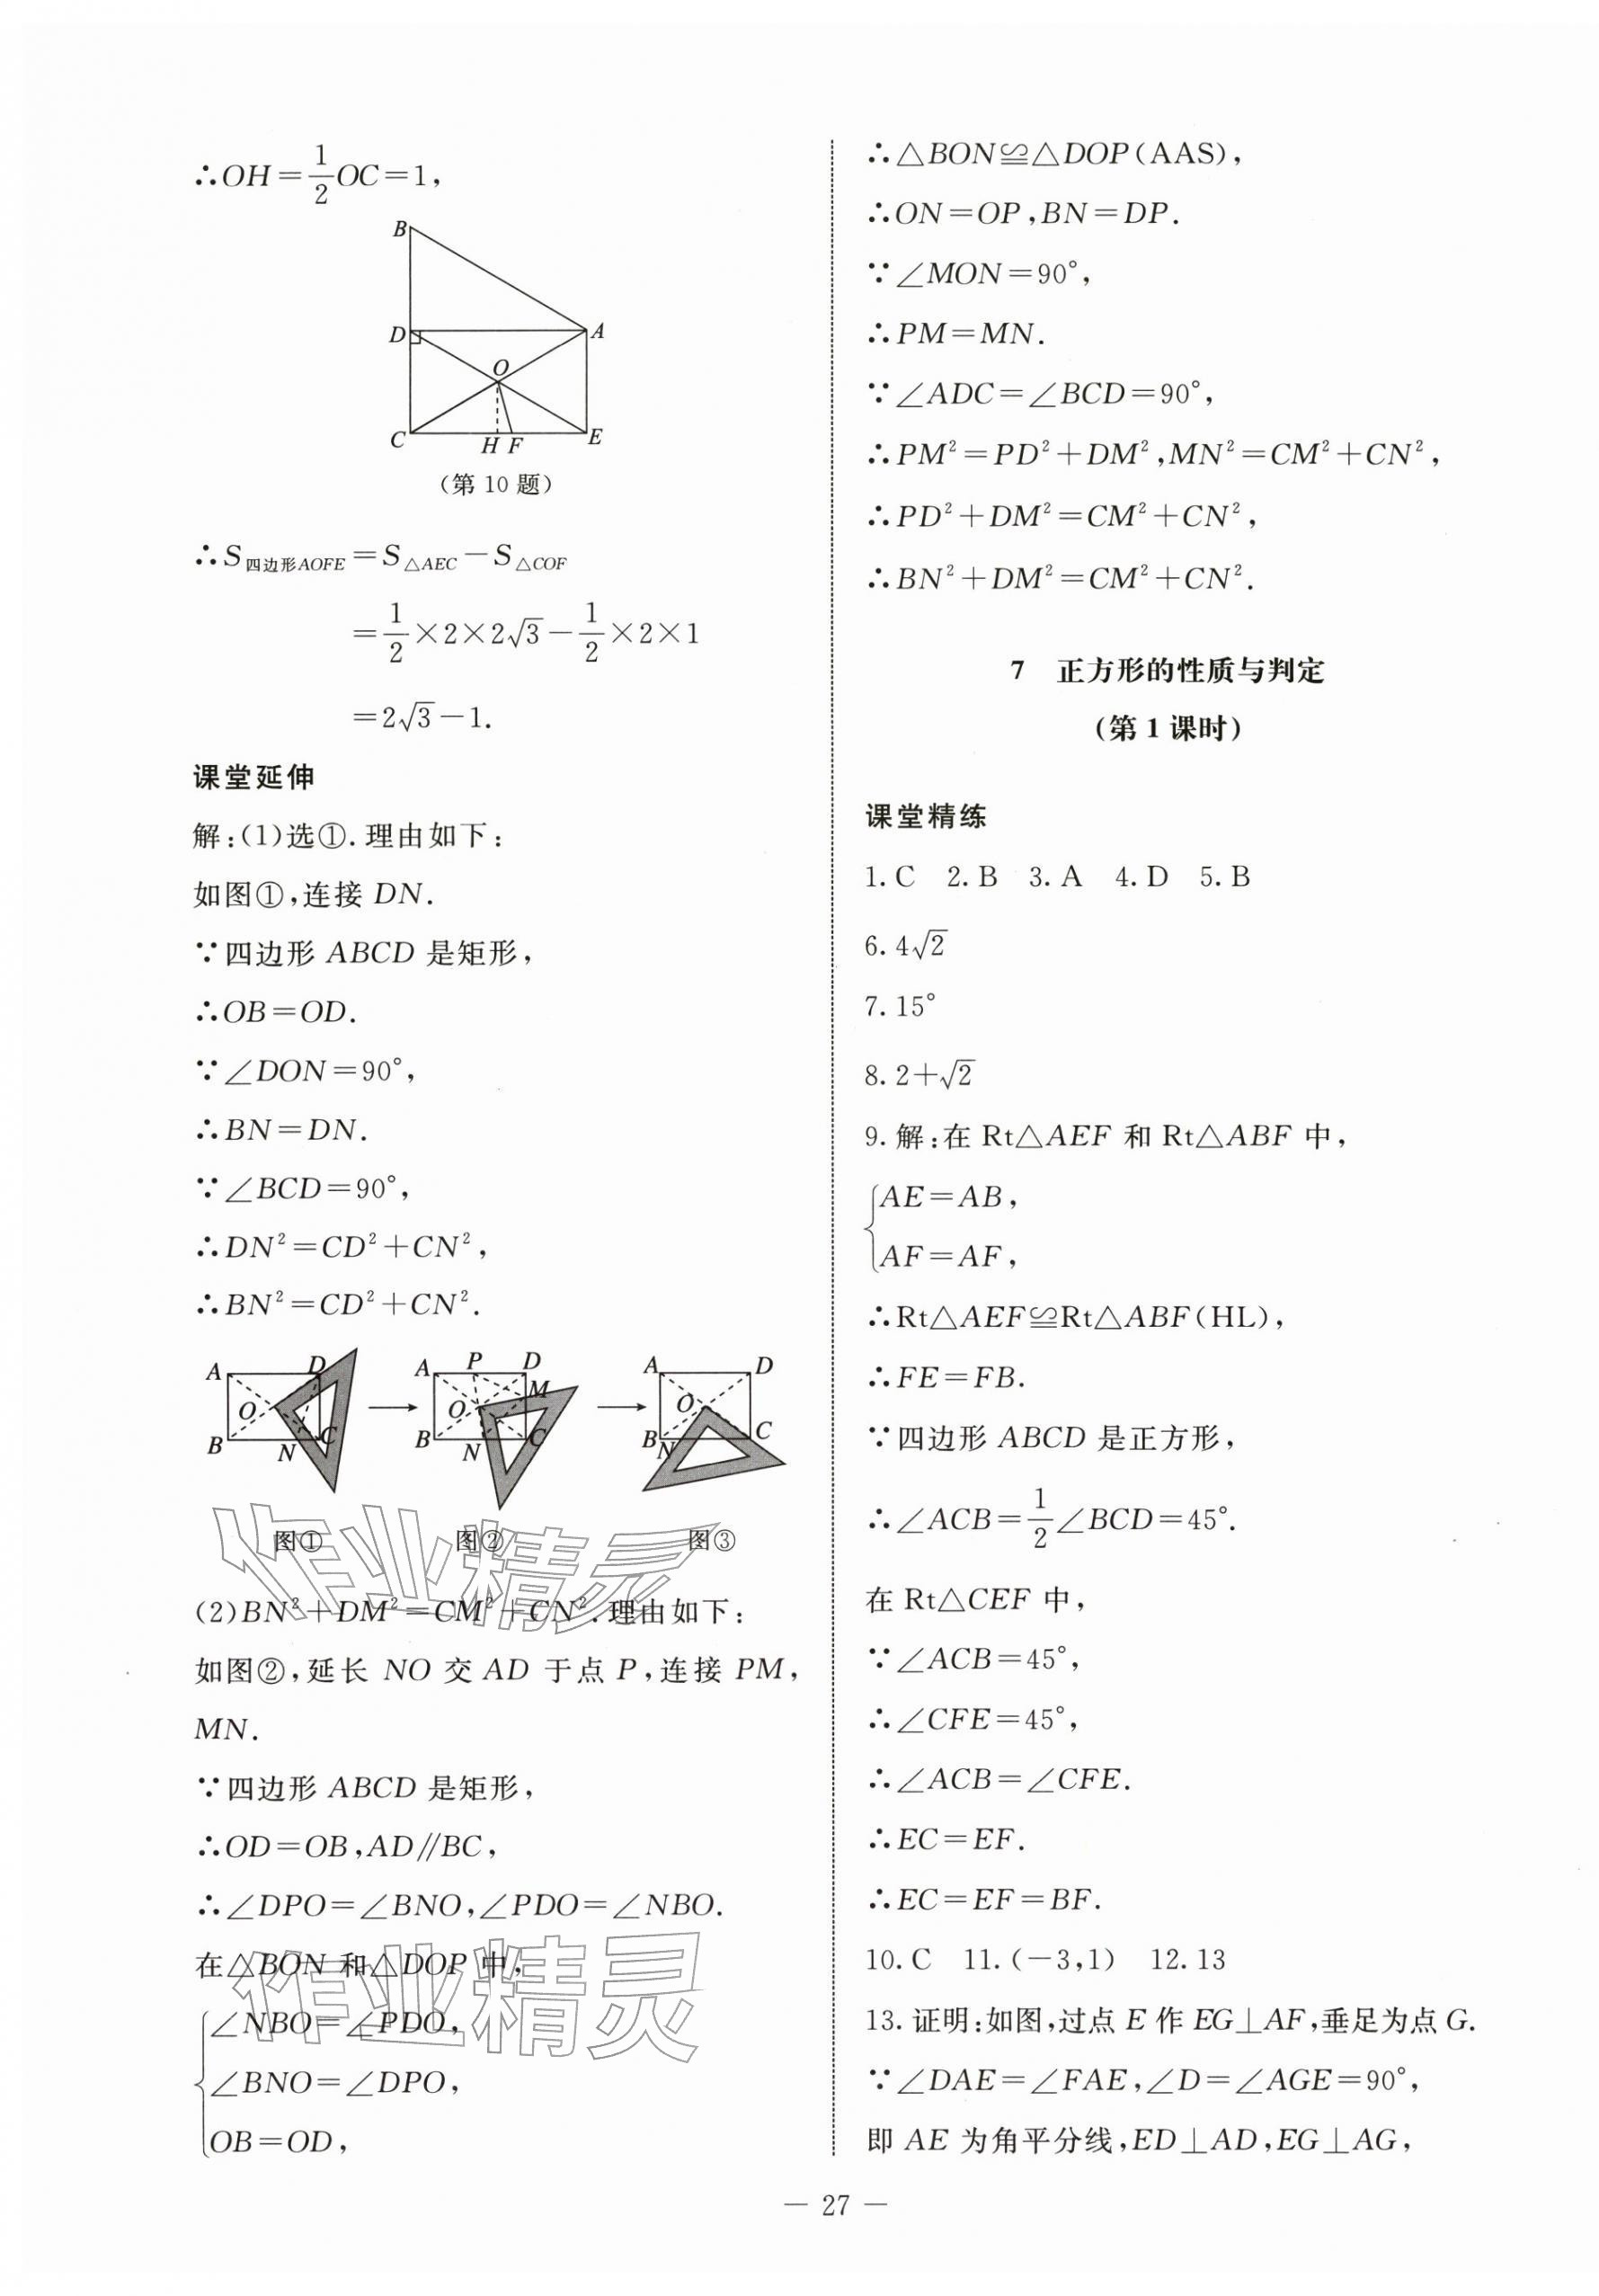 ∴OH=1/2OC=1,
B
D
A
O
C
H F
E
(第 10 题)
∴S四边形AOFE=S△AEC-S△COF
=1/2×2×2√3-1/2×2×1
=2√3-1.
课堂延伸
解:(1)选①.理由如下:
如图①,连接 DN.
∵四边形 ABCD 是矩形,
∴OB=OD.
∵∠DON=90°,
∴BN=DN.
∵∠BCD=90°,
∴DN²=CD²+CN²,
∴BN²=CD²+CN².
A D O B N C
A P D M O B N C
A D O B N C
图① 图② 图③
(2)BN²+DM²=CM²+CN².理由如下:
如图②,延长 NO 交 AD 于点 P,连接 PM,
MN.
∵四边形 ABCD 是矩形,
∴OD=OB,AD∥BC,
∴∠DPO=∠BNO,∠PDO=∠NBO.
在△BON 和△DOP 中,
∠NBO=∠PDO,
∠BNO=∠DPO,
OB=OD,
作业精灵
作业精灵
∴△BON≌△DOP(AAS),
∴ON=OP,BN=DP.
∵∠MON=90°,
∴PM=MN.
∵∠ADC=∠BCD=90°,
∴PM²=PD²+DM²,MN²=CM²+CN²,
∴PD²+DM²=CM²+CN²,
∴BN²+DM²=CM²+CN².
7 正方形的性质与判定
(第 1 课时)
课堂精练
1. C 2. B 3. A 4. D 5. B
6. 4√2
7. 15°
8. 2+√2
9. 解:在 Rt△AEF 和 Rt△ABF 中,
AE=AB,
AF=AF,
∴Rt△AEF≌Rt△ABF(HL),
∴FE=FB.
∵四边形 ABCD 是正方形,
∴∠ACB=1/2∠BCD=45°.
在 Rt△CEF 中,
∵∠ACB=45°,
∴∠CFE=45°,
∴∠ACB=∠CFE.
∴EC=EF.
∴EC=EF=BF.
10. C 11. (-3,1) 12. 13
13. 证明:如图,过点 E 作 EG⊥AF,垂足为点 G.
∵∠DAE=∠FAE,∠D=∠AGE=90°,
即 AE 为角平分线,ED⊥AD,EG⊥AG,
— 27 —